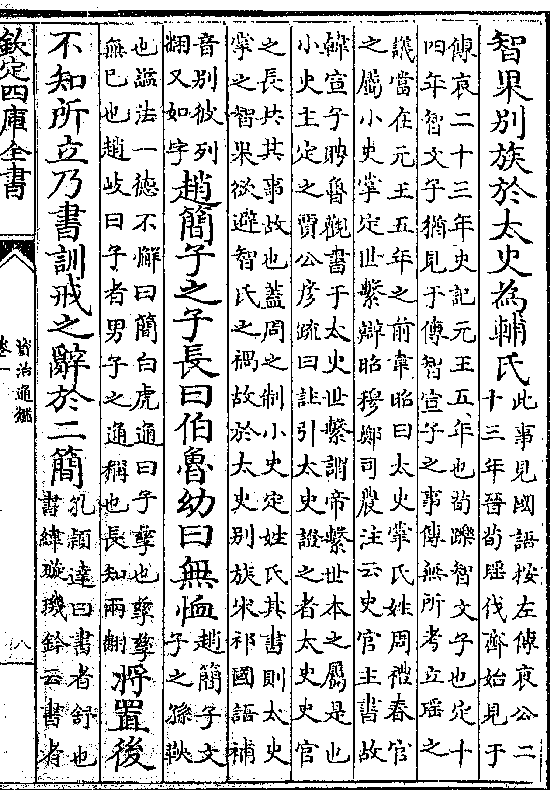 智果别族於太史為輔氏
此事見國語按左傳哀公二
十三年晉荀瑶伐齊始見于
傳哀二十三年史記元王五年也荀躒智文子也定十
四年智文子猶見于傳智宣子之事傳無所考立瑶之
議當在元王五年之前韋昭曰太史掌氏姓周禮春官
之屬小史掌定世繫辯昭穆鄭司農注云史官主書故
韓宣子聘魯觀書于太史世繫謂帝繫世本之屬是也
小史主定之賈公彦疏曰註引太史證之者太史史官
之長共其事故也蓋周之制小史定姓氏其書則太史
掌之智果欲避智氏之禍故於太史别族宋祁國語補
音别彼列
翻又如字
趙簡子之子長曰伯魯幼曰無恤
趙簡子文
子之孫鞅
也諡法一德不懈曰簡白虎通曰子孳也孳孳
無已也趙岐曰子者男子之通稱也長知兩翻
將置後
不知所立乃書訓戒之辭於二簡
孔頴達曰書者舒也
書緯璇璣鈐云書者
欽定四庫全書
資治通鑑
卷一
八